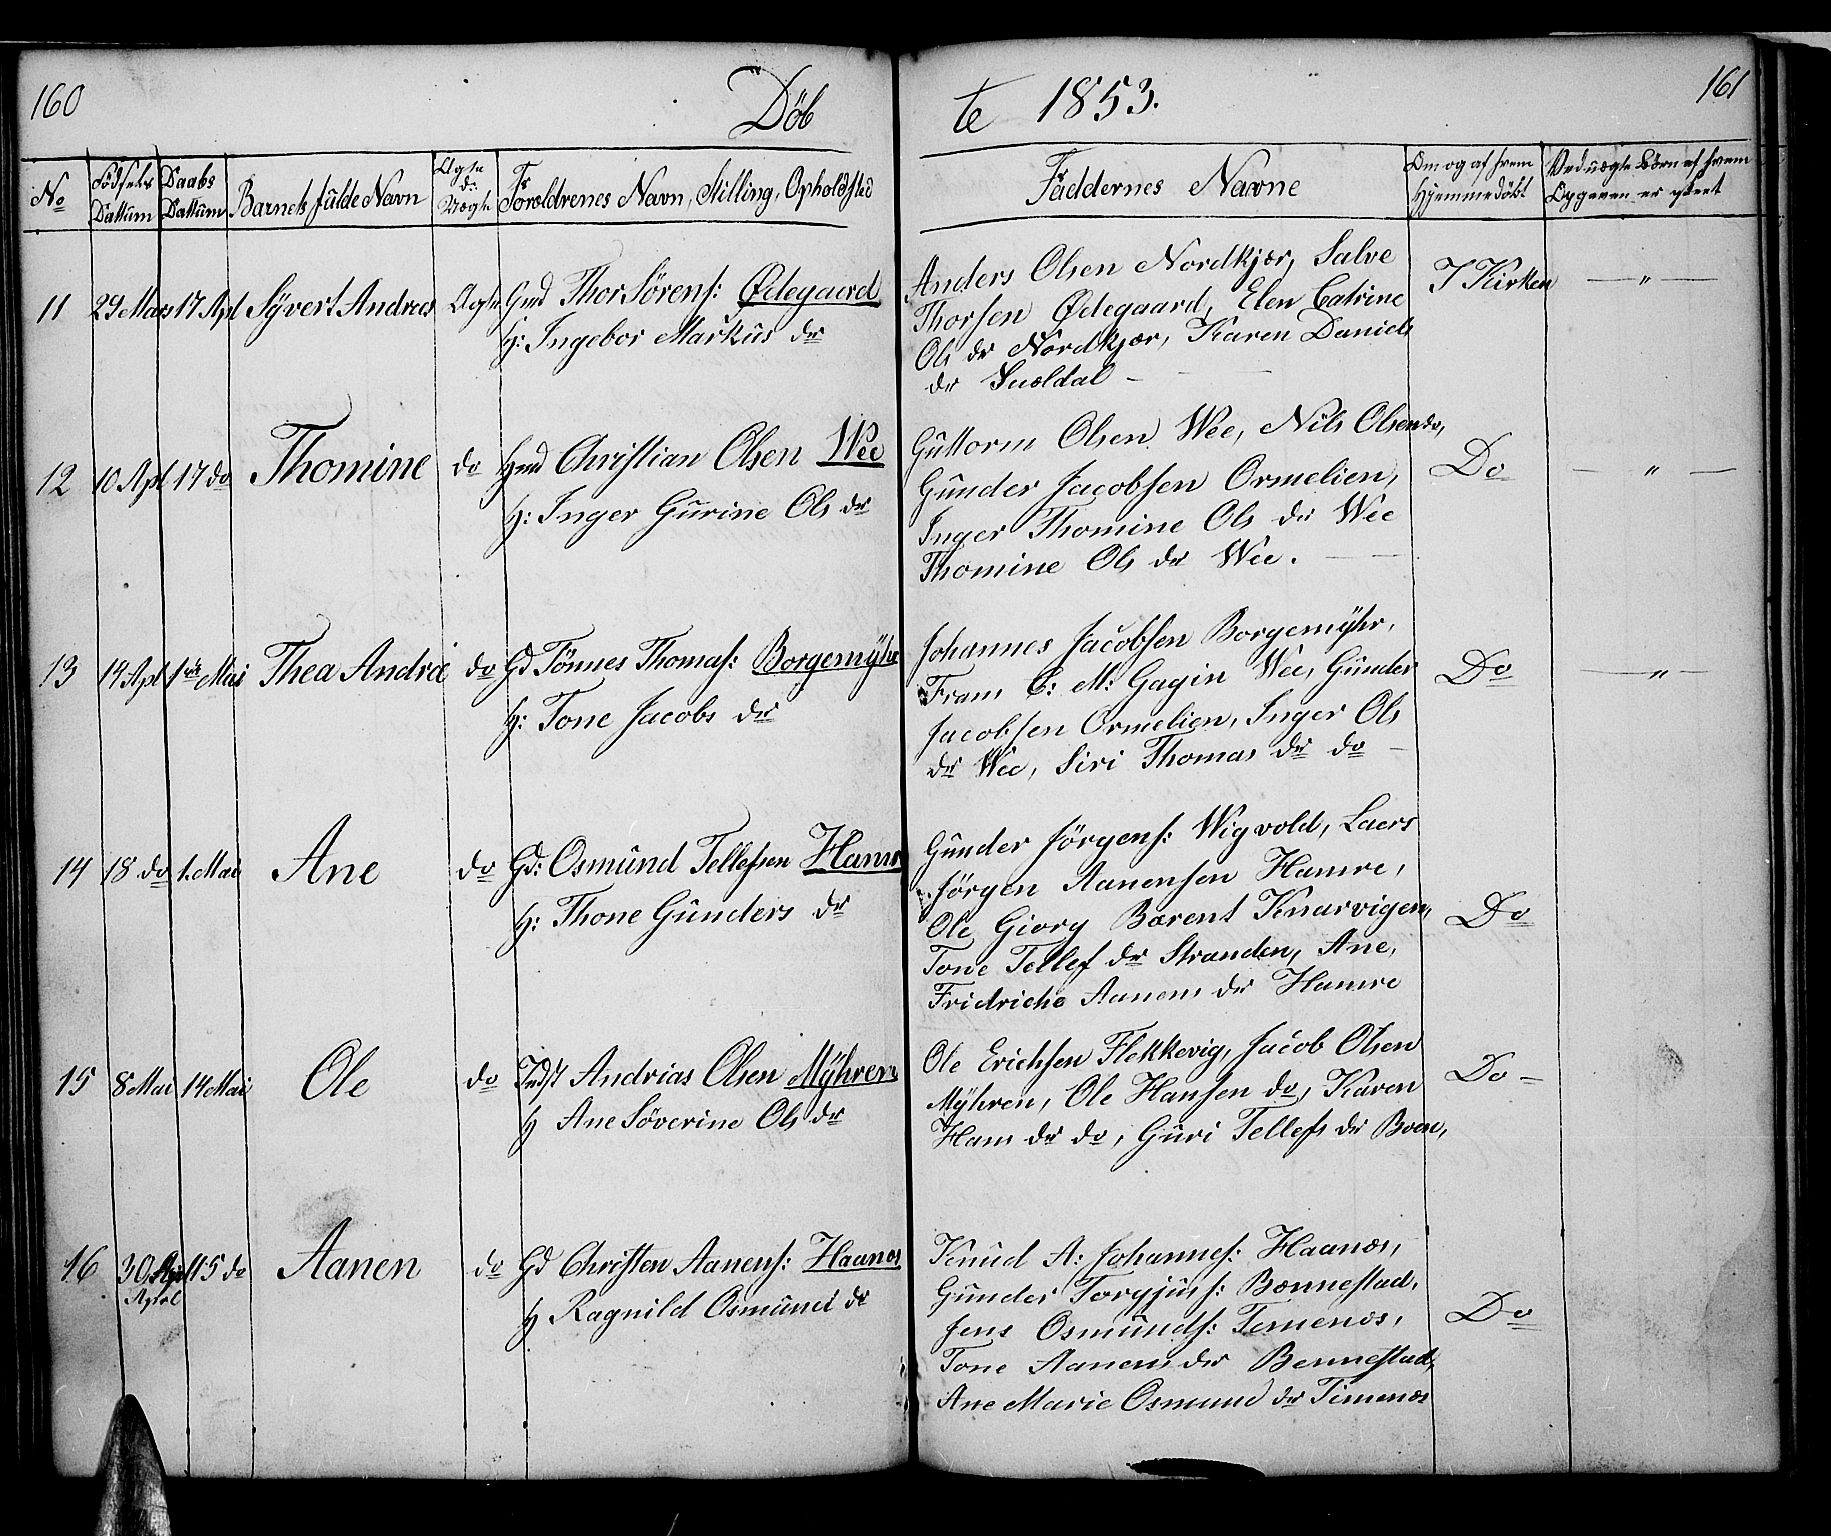 160
Döb
te 1853.
161
No
Födsels Dattum
Daabs Dattum
Barnets fulde Navn
Ægte do Uægte
Forældrenes Navn, Stilling, Opholdsted
Faddernes Navne
Om og af hvem Hjemmedöbt
Ved uægte Börn af hvem Opgaven er skeet
11 29 Mars 17 Apl Syvert Andreas Ægte Gmd Thor Sörens: Ødegaard
H: Ingebor Markus dr
Anders Olsen Nordkjær, Salve
Thorsen Ødegaard, Elen Catrine
Ols dr Nordkjær, Karen Daniels
dr Sueldal -
I Kirken
— " —
12 10 Apl 17 do Thomine do Hmd Christian Olsen Wee
H: Inger Gurine Ols dr
Guttorm Olsen Wee, Nils Olsen do,
Gunder Jacobsen Ormelien,
Inger Thomine Ols dr Wee
Thomine Ols dr Wee.
Do
— " —
13 14 Apl 1de Mai Thea Andrea do Gd Tönnes Thomas: Borgemyhr
H: Tone Jacobs dr
Johannes Jacobsen Borgemyhr,
Frans C: M: Gagin Wee, Gunder
Jacobsen Ormelien, Inger Ols
dr Wee, Siri Thomas dr do -
Do
— " —
14 18 do 1. Mai Ane do Gd: Osmund Tellefsen Hamre
H: Thone Gunders dr
Gunder Jörgens: Wigvold, Laers
Jörgen Aanensen Hamre,
Ole Giorg Bærent Knarvigen,
Tone Tellef dr Stranden, Ane,
Fridriche Aanens dr Hamre
Do
15 8 Mai 14 Mai Ole do Indst Andrias Olsen Myhren
H Ane Söverine Ols dr
Ole Erichsen Flekkevig, Jacob Olsen
Myhren, Ole Hansen do, Karen
Hans dr do, Guri Tellefs dr Boen,
Do -
16 30 April 15 do Aanen do Gd Christen Aanens: Haanes
H Ragnild Osmund dr
Knud A: Johannes: Haanæs,
Gunder Torgjus: Bænnestad,
Jens Osmunds: Temenæs,
Tone Aanens dr Bennestad,
Ane Marie Osmund dr Timenæs
Do